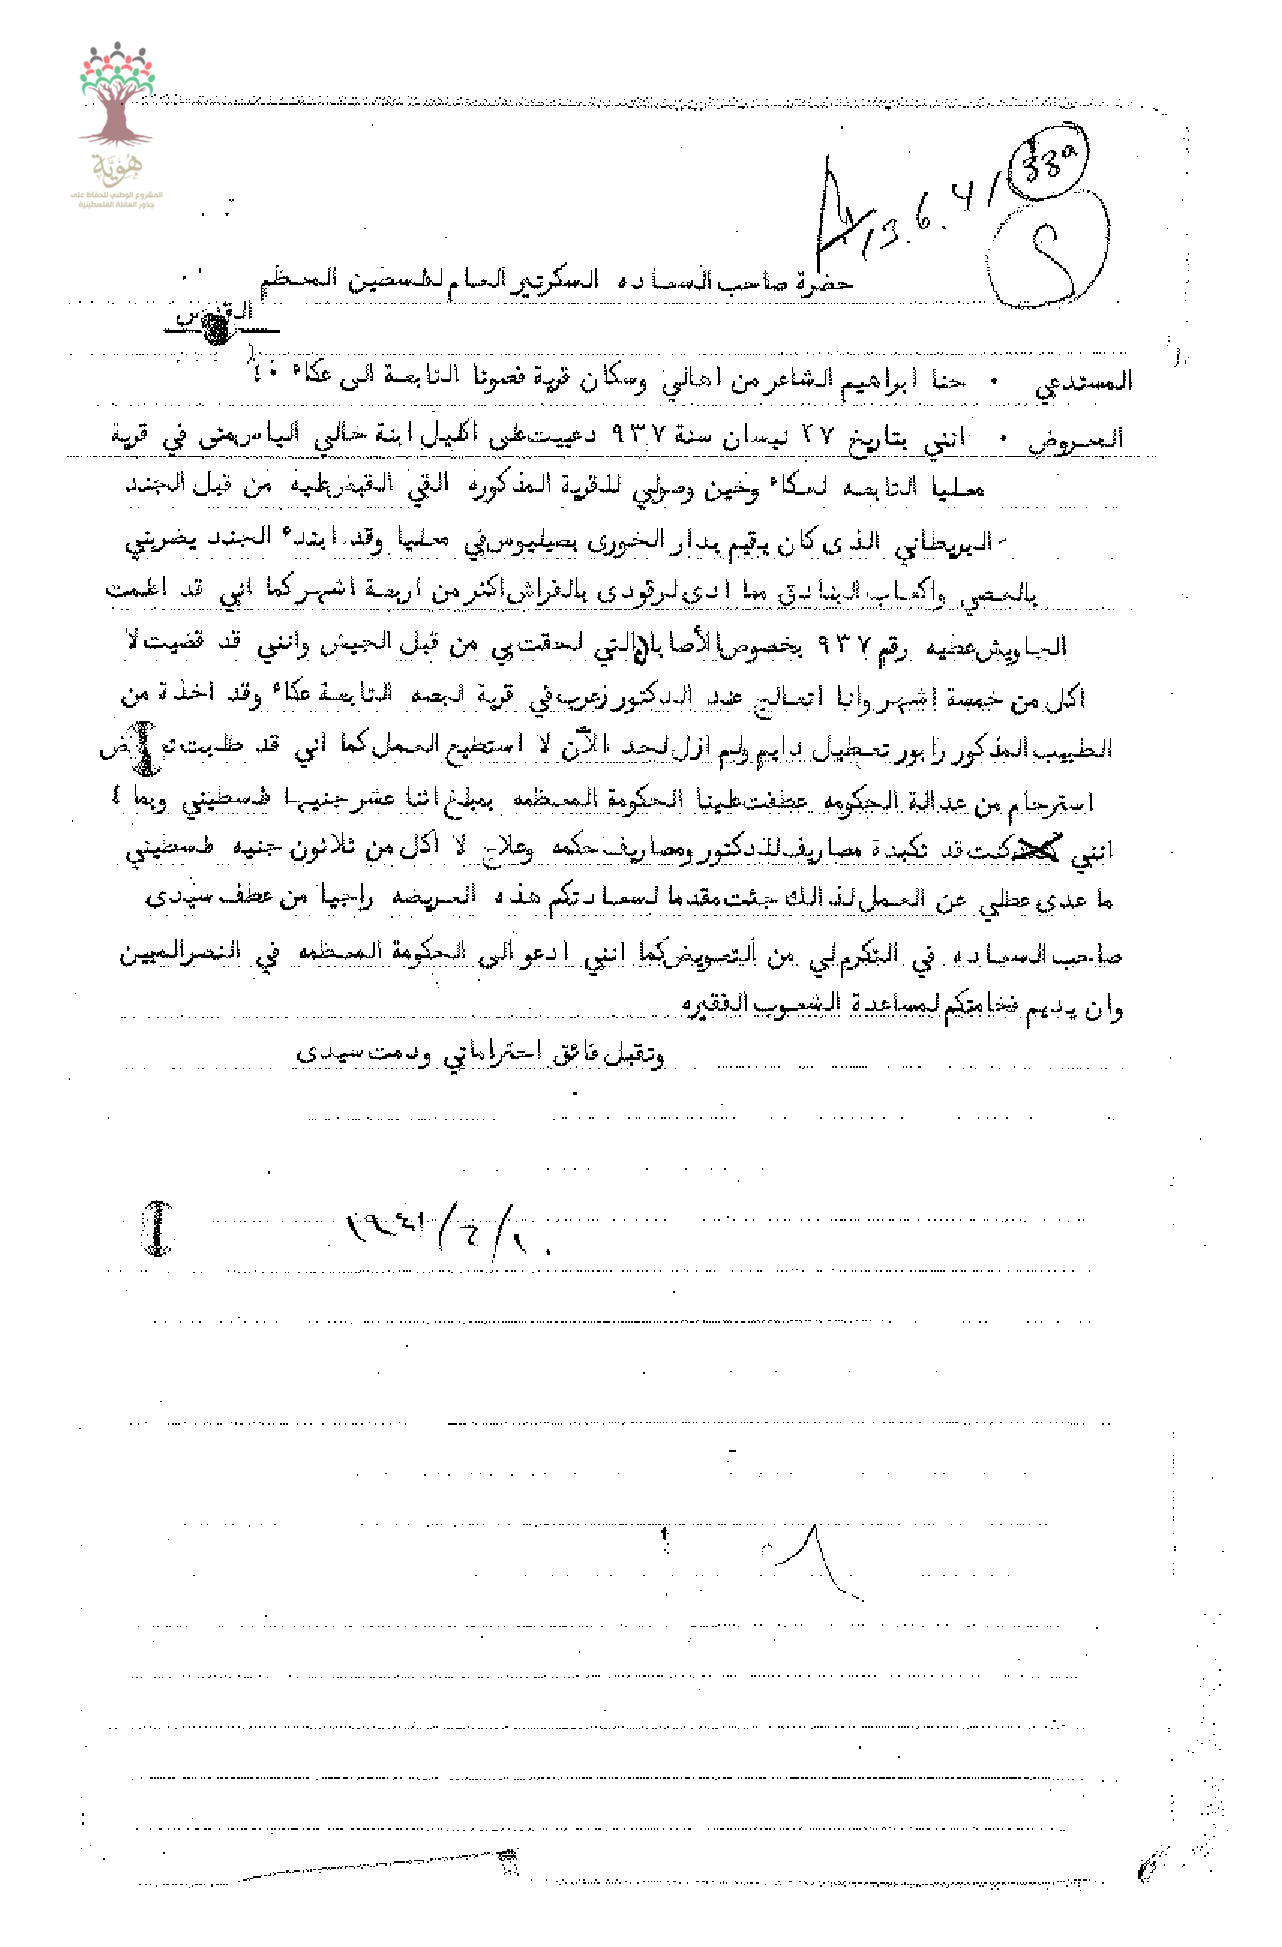 هُوِيَّة
المشروع الوطني للحفاظ على
جذور العائلة الفلسطينية
33a
13.6.41
حضرة صاحب السعاده السكرتير العام لفلسطين المعظم
القدس
المستدعي ٠ حنا ابراهيم الشاعر من اهالي وسكان قرية فسوتا التابعة الى عكاء ٠
المعروض ٠ انني بتاريخ ٢٧ نيسان سنة ٩٣٧ دعييت على اكليل ابنة خالي الياس في قرية
معليا التابعه لعكاء وحين وصولي للقرية المذكوره القي القبض عليه من قبل الجند
البريطاني الذى كان يقيم بدار الخورى بصيليوس في معليا وقد ابتدء الجند يضربني
بالعصي واكعاب البنادق مما ادى لرقودى بالفراش اكثر من اربعة اشهر كما اني قد اعلمت
الجاويش عطيه رقم ٩٣٧ بخصوص الأصابات التي لحقت بي من قبل الجيش وانني قد قضيت لا
اكل من خمسة اشهر وانا اتعالج عند الدكتور زعرب في قرية البصه التابعة عكاء وقد اخذة من
الطبيب المذكور رابور تعطيل دايم ولم ازل لحد الآن لا استطيع العمل كما اني قد طلبت تعويض
استرحام من عدالة الحكومه عطفت علينا الحكومة المعظمه بمبلغ اثنا عشر جنيها فلسطيني وبما
انني كنت قد تكبدة مصاريف للدكتور ومصاريف حكمه وعلاج لا اكل من ثلاثون جنيه فلسطيني
ما عدى عطلي عن العمل لذالك جئت مقدما لسعادتكم هذه العريضه راجيا من عطف سيدى
صاحب السعاده في التكرم لي من التعويض كما انني ادعو الى الحكومة المعظمه في النصر المبين
وان يديم فخامتكم لمساعدة الشعوب الفقيره
وتقبل فائق احتراماتي ودمت سيدى
١٩٤١/٤/١٠